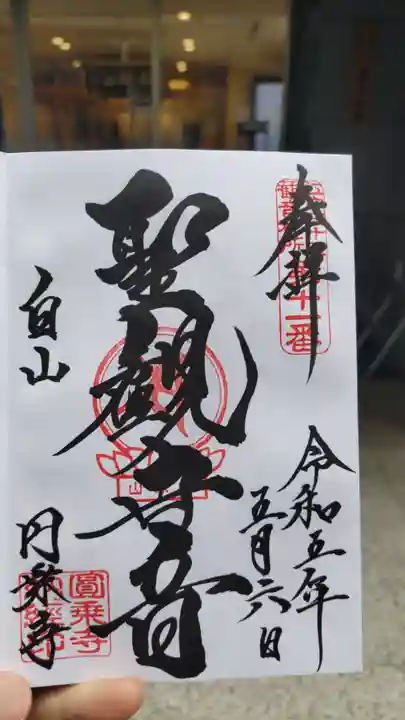 奉拝
十一番
令和五年
五月六日
聖観世音
白山
円乗寺
圓乗寺